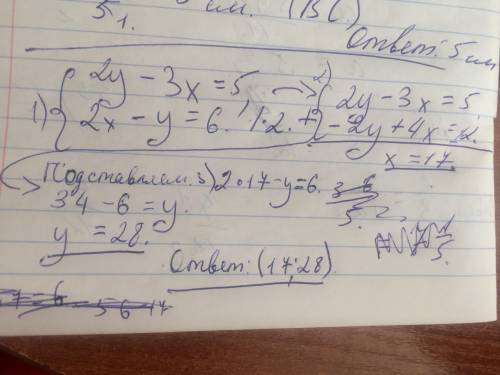 51. см. (ВС)
Ответ: 5 см
1) { 2y - 3x = 5
2x - y = 6. | · 2.
2) { 2y - 3x = 5
+ -2y + 4x = 12.
x = 17.
Подставляем. 3) 2 · 17 - y = 6.
34 - 6 = y.
y = 28.
Ответ: (17; 28).